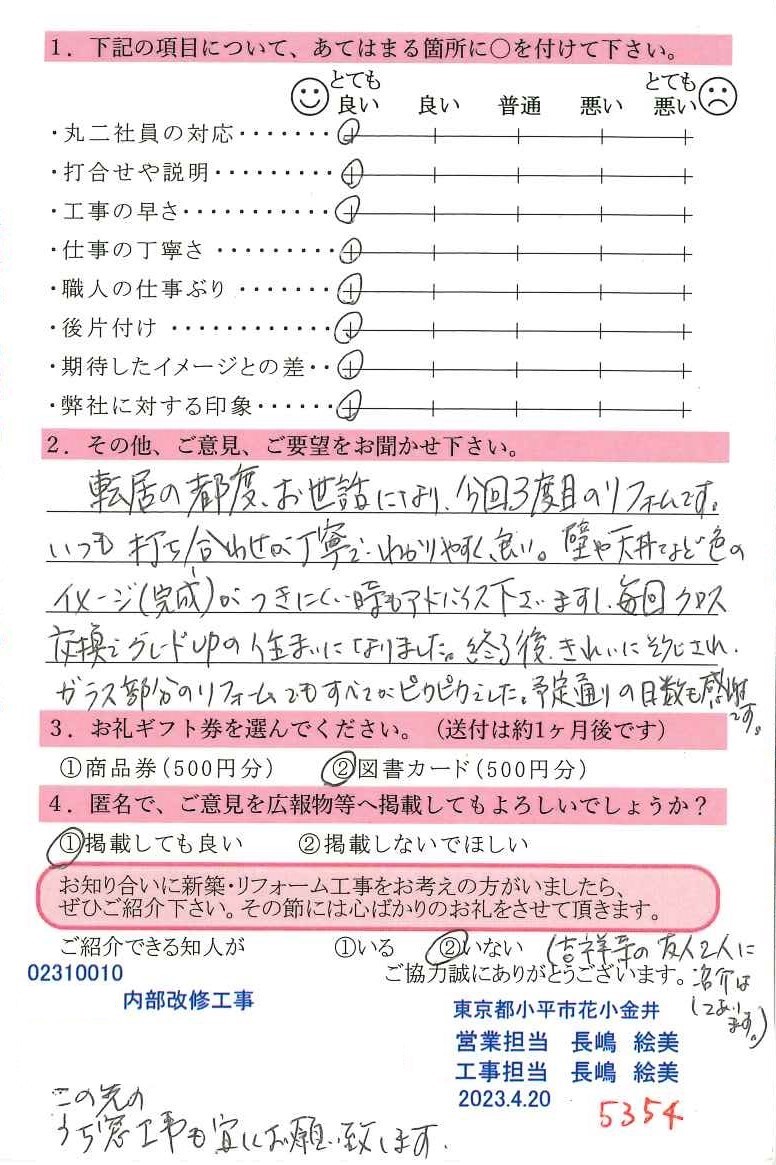 1．下記の項目について、あてはまる箇所に〇を付けて下さい。
とても良い 良い 普通 悪い とても悪い
・丸二社員の対応・・・・・・・
・打合せや説明・・・・・・・・・
・工事の早さ・・・・・・・・・・・
・仕事の丁寧さ・・・・・・・・・
・職人の仕事ぶり・・・・・・・
・後片付け・・・・・・・・・・・・
・期待したイメージとの差・・
・弊社に対する印象・・・・・・
2．その他、ご意見、ご要望をお聞かせ下さい。
転居の都度、お世話になり、今回3度目のリフォームです。
いつも打ち合わせが丁寧で、わかりやすく、良い。壁や天井など色の
イメージ(完成)がつきにくい時もアドバイス下さいますし、毎回クロス
交換でグレードUPの住まいになりました。終了後、きれいにそうじされ、
ガラス部分のリフォームでもすべてがピカピカでした。予定通りの日数も感謝です。
3．お礼ギフト券を選んでください。（送付は約1ヶ月後です）
①商品券(500円分) ②図書カード(500円分)
4．匿名で、ご意見を広報物等へ掲載してもよろしいでしょうか？
①掲載しても良い ②掲載しないでほしい
お知り合いに新築・リフォーム工事をお考えの方がいましたら、
ぜひご紹介下さい。その節には心ばかりのお礼をさせて頂きます。
ご紹介できる知人が ①いる ②いない (吉祥寺の友人2人に
紹介は
しております。)
ご協力誠にありがとうございます。
02310010
内部改修工事
東京都小平市花小金井
営業担当 長嶋 絵美
工事担当 長嶋 絵美
2023.4.20
5354
この先の
うち窓工事も宜しくお願い致します。